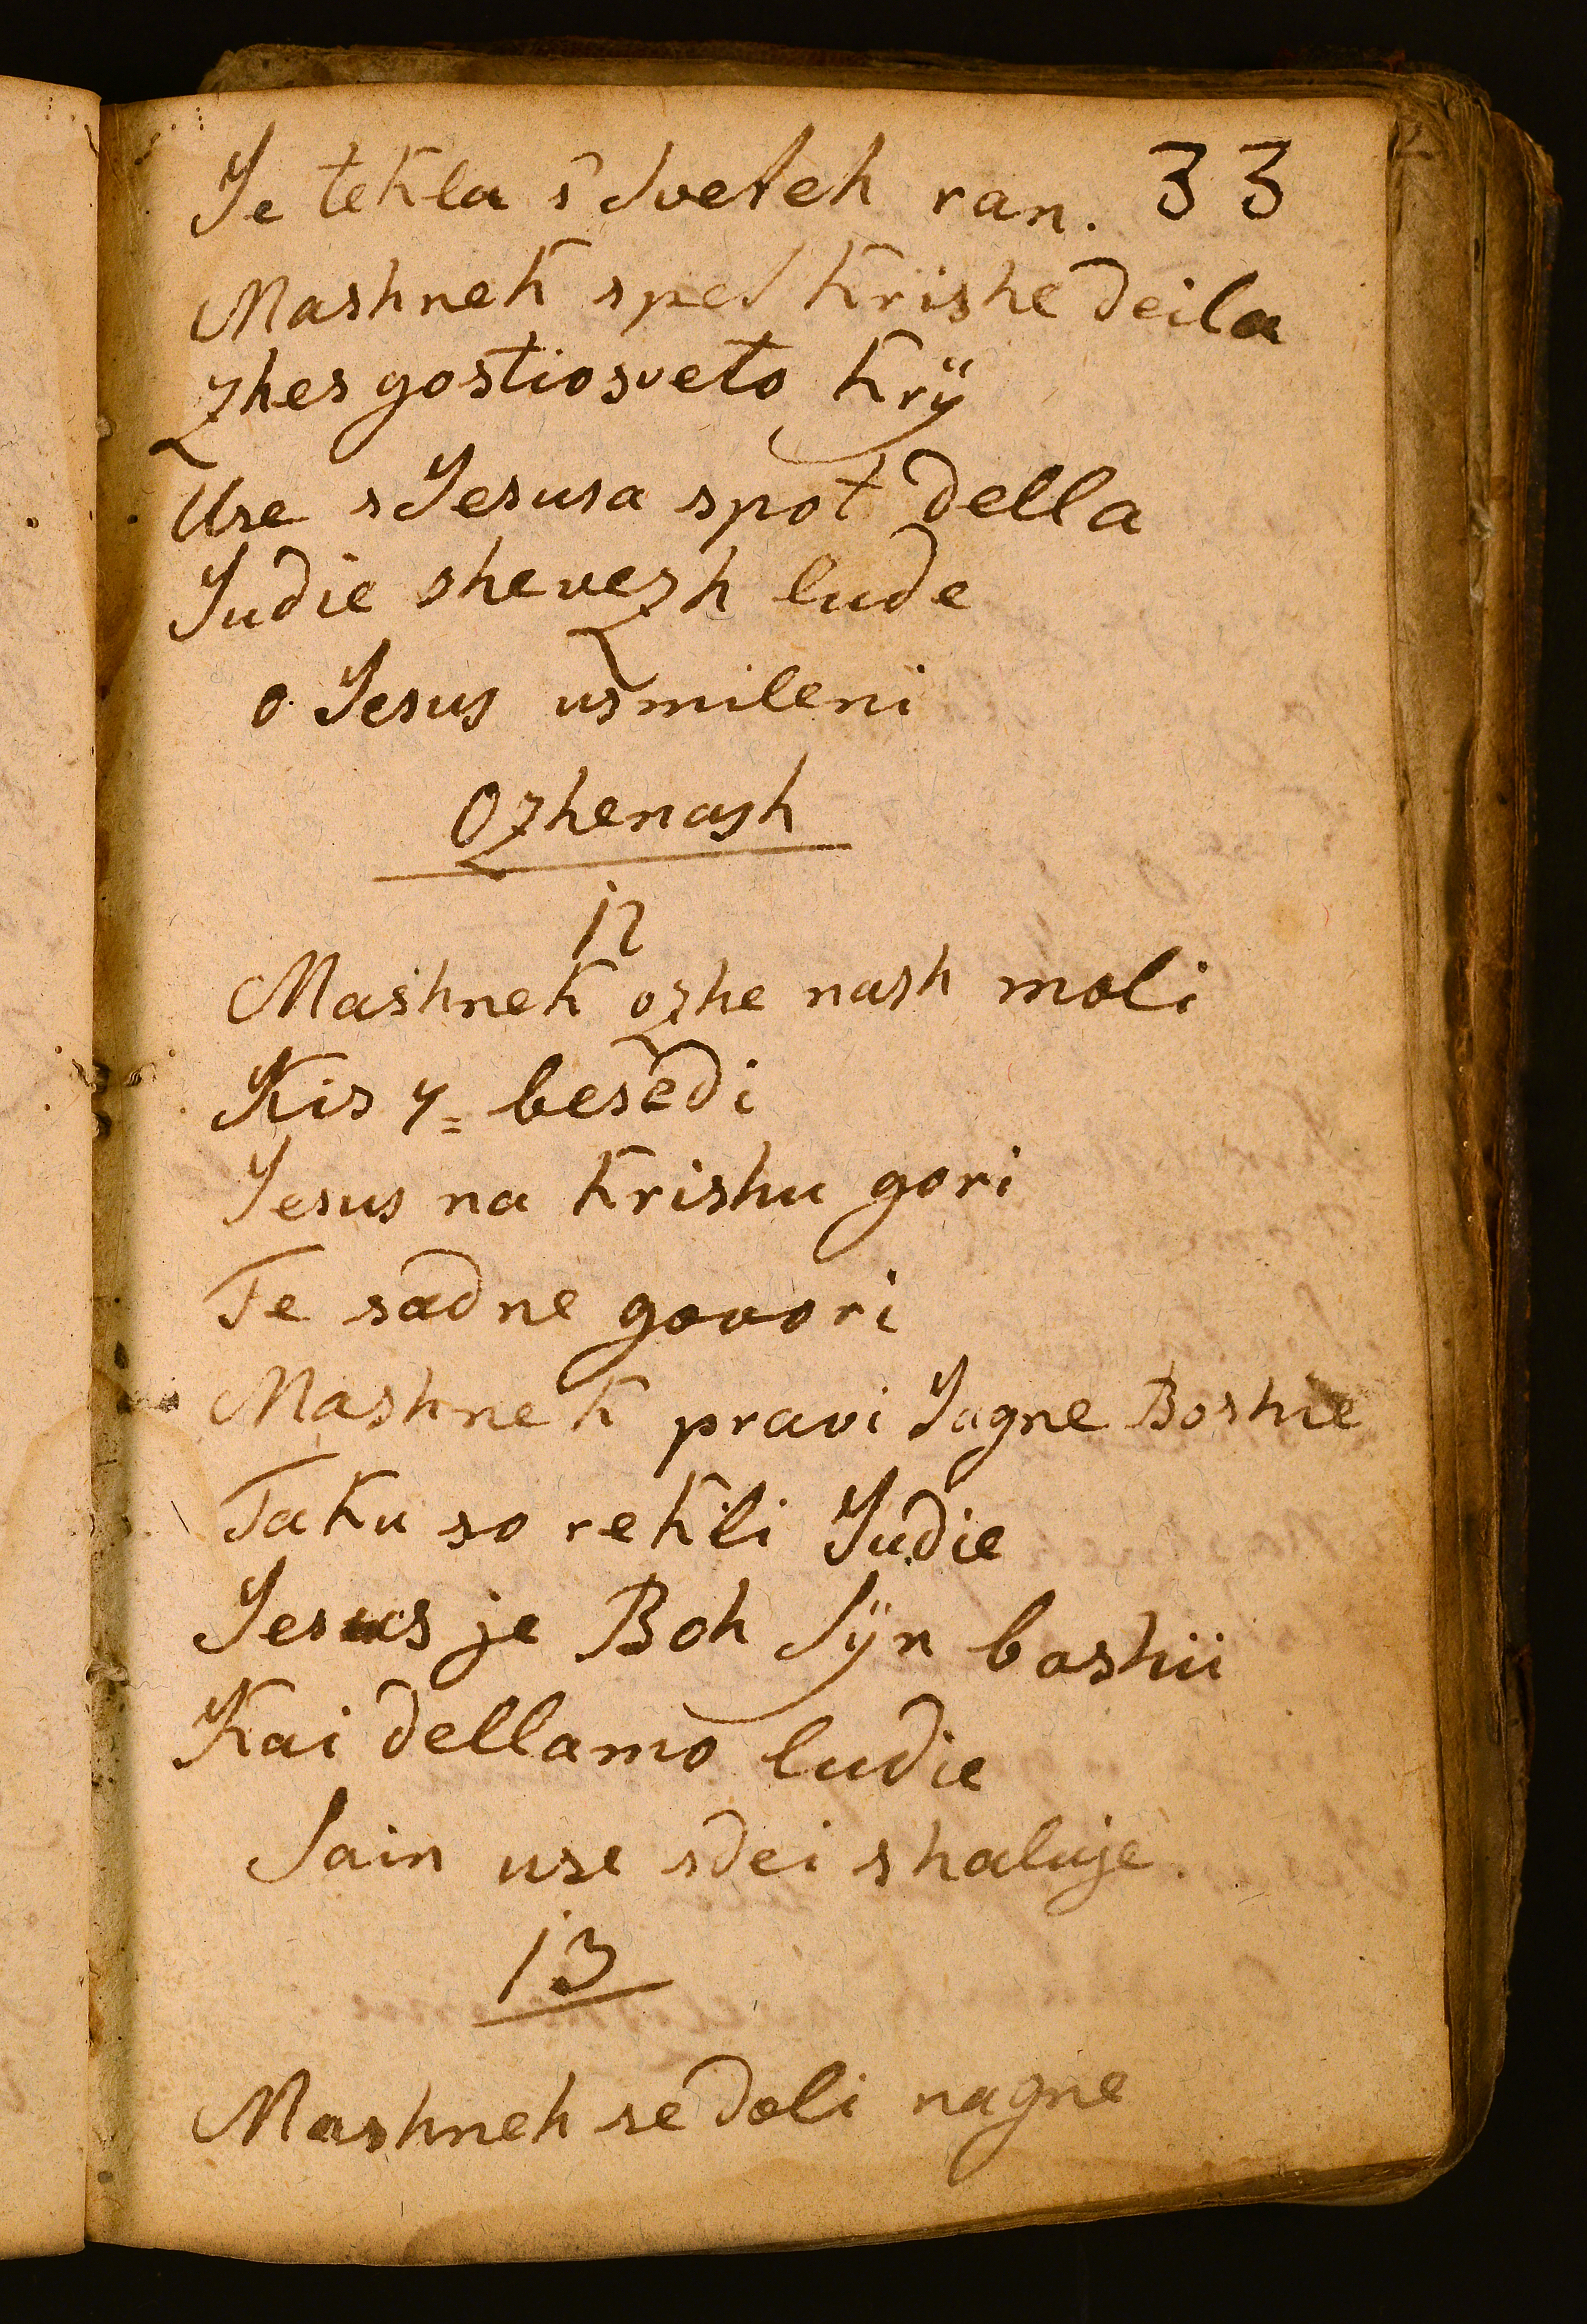 Je tekla s' Sveteh ran. 33
Mashnek spet Krishe deila
zhes gostio sveto Krÿ
Use s Jesusa spot della
Judie shevezh lude
o Jesus usmileni
Ozhenash
12
Mashnek ozhe nash moli
Kis 7= besedi
Jesus na Krishu gori
Te sadne govori
Mashnek pravi Jagne Boshie
Taku so rekli Judie
Jesus je Boh Sÿn boshii
Kai dellamo ludie
Sain use sdei shaluje.
13
Mashneh se doli nagne